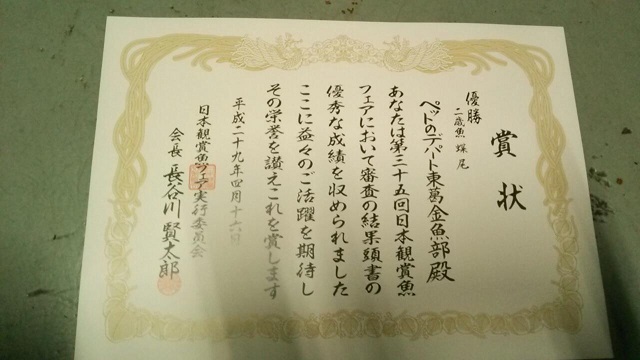 賞状
優勝
二歳魚 蝶尾
ペットのデパート東葛金魚部殿
あなたは第三十五回日本観賞魚
フェアにおいて審査の結果頭書の
優秀な成績を収められました
ここに益々のご活躍を期待し
その栄誉を讃えこれを賞します
平成二十九年四月十六日
日本観賞魚フェア実行委員会
会長 長谷川賢太郎